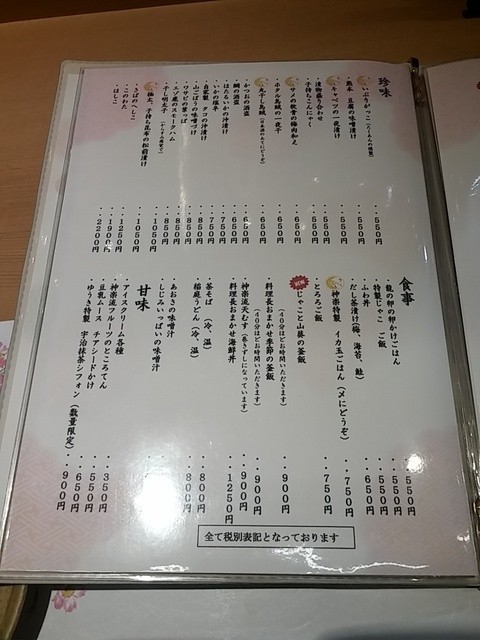 珍味
いぶりがっこ(だいこんの燻製)・・550円
熊本 豆腐の味噌漬け・・550円
キャベツの一夜漬け・・550円
漬物盛り合わせ・・550円
子持ちこんにゃく・・550円
サメの軟骨の梅肉和え・・650円
ホタル烏賊の一夜干・・650円
丸干し烏賊・・650円
かつおの酒盗・・650円
鯛の酒盗・・650円
ほたるいかの沖漬け・・750円
いかの塩辛・・750円
自家製 タコの沖漬け・・850円
山ごぼうの味噌づけ・・850円
ワサビの葉っぱ・・850円
エゾ鹿のスモークハム・・850円
干し明太子・・850円
極太、子持ち昆布の松前漬け・・1050円
さばのへしこ・・1250円
このわた・・1900円
ほしこ・・2200円
食事
龍の卵の卵かけごはん・・550円
特製じゃこ ご飯・・550円
ふわ丼・・550円
だし茶漬け(梅、海苔、鮭)・・650円
神楽特製 イカ玉ごはん(〆にどうぞ)・・750円
とろろご飯・・750円
じゃこと山葵の釜飯・・900円
(40分ほどお時間いただきます)
料理長おまかせ季節の釜飯・・900円
(40分ほどお時間いただきます)
神楽流天むす(巻きずしになっています)・・900円
料理長おまかせ海鮮丼・・1250円
茶そば (冷、温)・・800円
稲庭うどん(冷、温)・・800円
あおさの味噌汁
しじみいっぱいの味噌汁
甘味
アイスクリーム各種・・350円
神楽流フルーツのところてん・・550円
豆乳ムース チアシードかけ・・650円
ゆうき特製 宇治抹茶シフォン(数量限定)・・900円
全て税別表記となっております